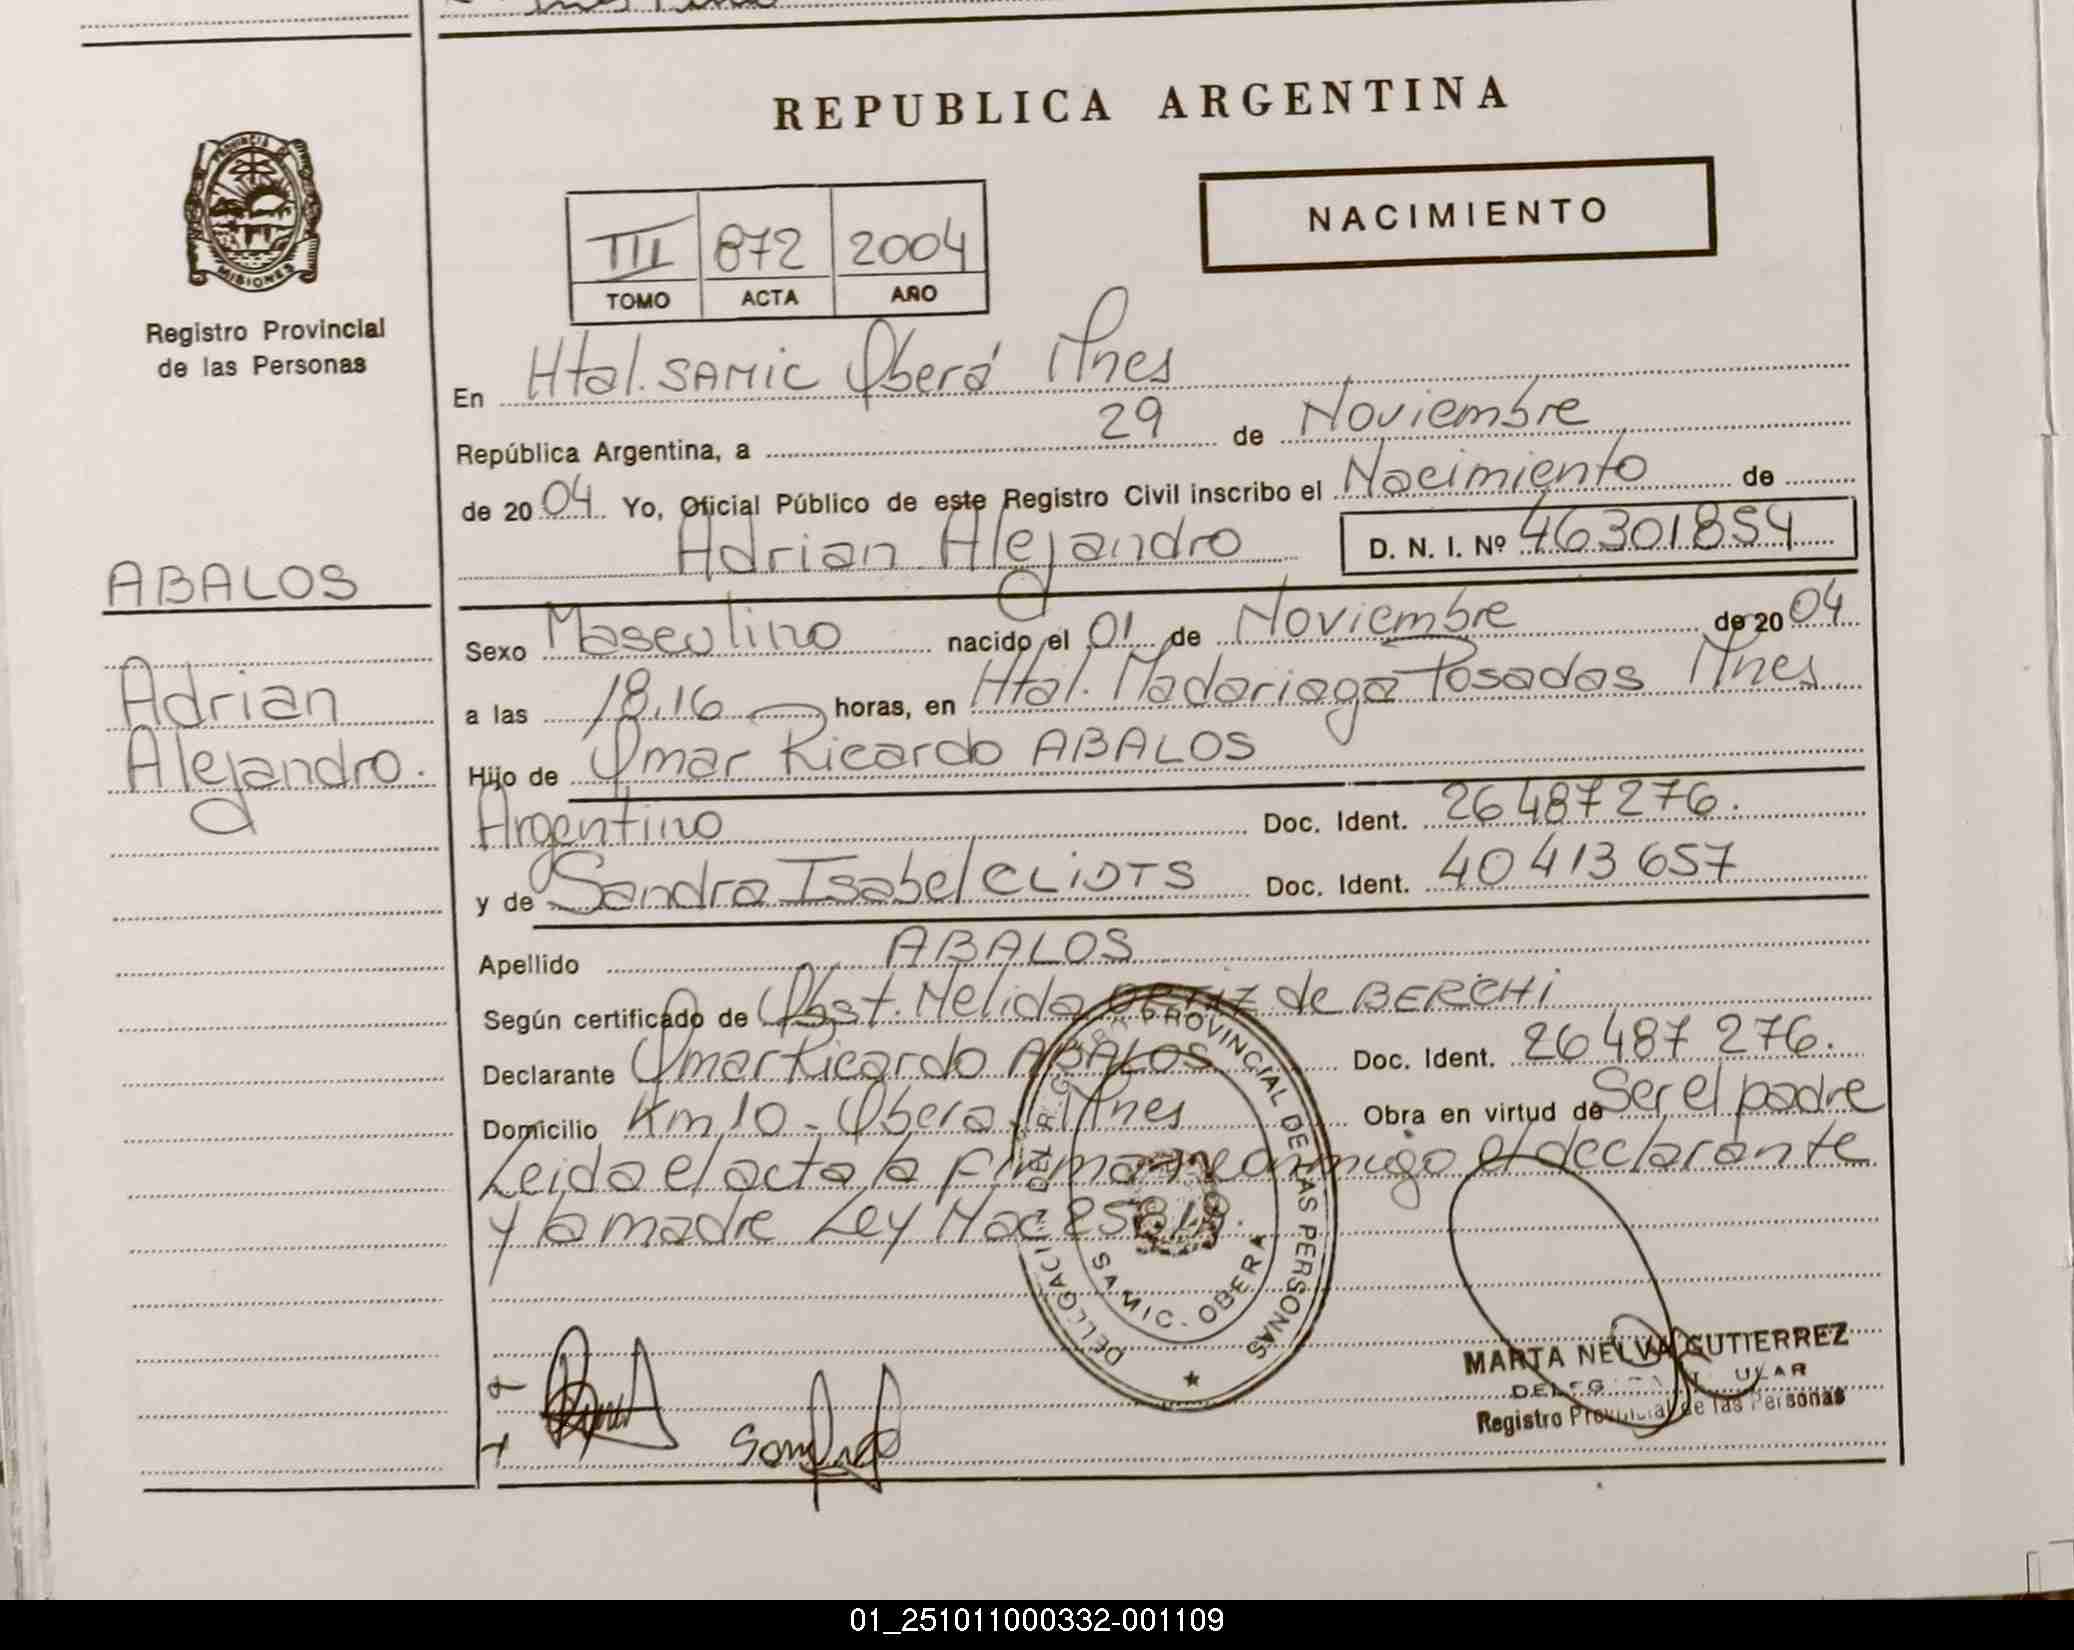 REPUBLICA ARGENTINA
PROVINCIA DE
MISIONES
Registro Provincial
de las Personas
NACIMIENTO
III 872 2004
TOMO ACTA AÑO
En Htal. SAMIC Oberá Mnes
República Argentina, a 29 de Noviembre
de 2004 Yo, Oficial Público de este Registro Civil inscribo el Nacimiento de
Adrian Alejandro D. N. I. Nº 46301854
ABALOS
Adrian
Alejandro.
Sexo Masculino nacido el 01 de Noviembre de 2004
a las 18,16 horas, en Htal. Madariaga Posadas Mnes
Hijo de Omar Ricardo ABALOS
Argentino Doc. Ident. 26487276.
y de Sandra Isabel Doc. Ident. 40413657
Apellido ABALOS
Según certificado de Obst. Nelida ORTIZ de BERCHI
Declarante Omar Ricardo ABALOS Doc. Ident. 26487276.
Domicilio Km 10 - Oberá. Mnes Obra en virtud de Ser el padre
Leida el acta la firman conmigo el declarante
y la madre Ley Nac 25819.
DELEGACION DEL REGISTRO PROVINCIAL DE LAS PERSONAS
SAMIC - OBERA
MARTA NELVA GUTIERREZ
Registro Provincial de las Personas
01_251011000332-001109